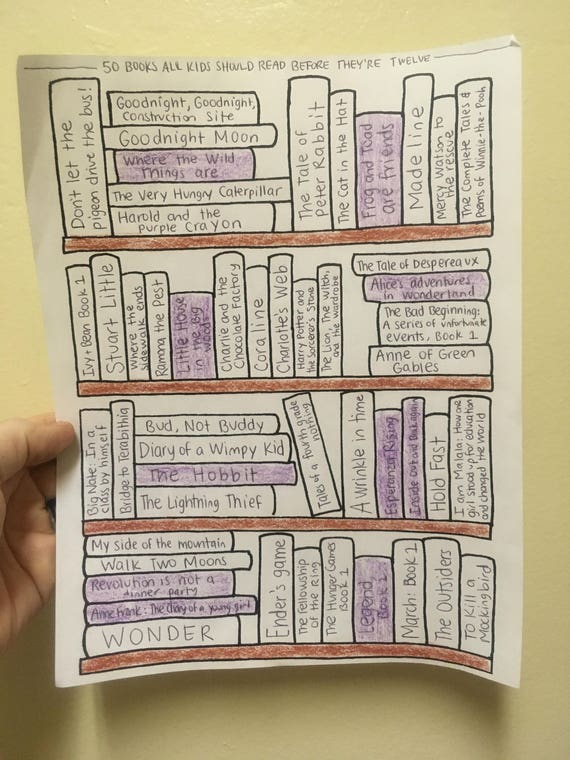 50 BOOKS ALL KIDS SHOULD READ BEFORE THEY'RE TWELVE
Don't let the
pigeon drive the bus!
Goodnight, Goodnight,
construction site
Goodnight Moon
Where the Wild
Things are
The Very Hungry Caterpillar
Harold and the
purple Crayon
The Tale of
Peter Rabbit
The Cat in the Hat
Frog and Toad
are friends
Madeline
Mercy Watson to
the rescue
The Complete Tales &
Poems of Winnie-the-Pooh
Ivy + Bean Book 1
Stuart Little
Where the
sidewalk ends
Ramona the Pest
Little House
in the Big
Woods
Charlie and the
Chocolate Factory
Coraline
Charlotte's Web
Harry Potter and
the Sorcerer's Stone
The Lion, The Witch,
and the Wardrobe
The Tale of Despereaux
Alice's adventures
in Wonderland
The Bad Beginning:
A series of unfortunate
events, Book 1
Anne of Green
Gables
Big Nate: In a
class by himself
Bridge to Terabithia
Bud, Not Buddy
Diary of a Wimpy Kid
The Hobbit
The Lightning Thief
Tales of a fourth grade
nothing
A Wrinkle in time
Esperanza Rising
Inside Out and Back again
Hold Fast
I am Malala: How one
girl stood up for education
and changed the world
My side of the mountain
Walk Two Moons
Revolution is not a
dinner party
Anne Frank: The diary of a young girl
WONDER
Ender's game
The Fellowship
of the ring
The Hunger Games
Book 1
Legend
Book 1
March: Book 1
The Outsiders
To Kill a
Mockingbird